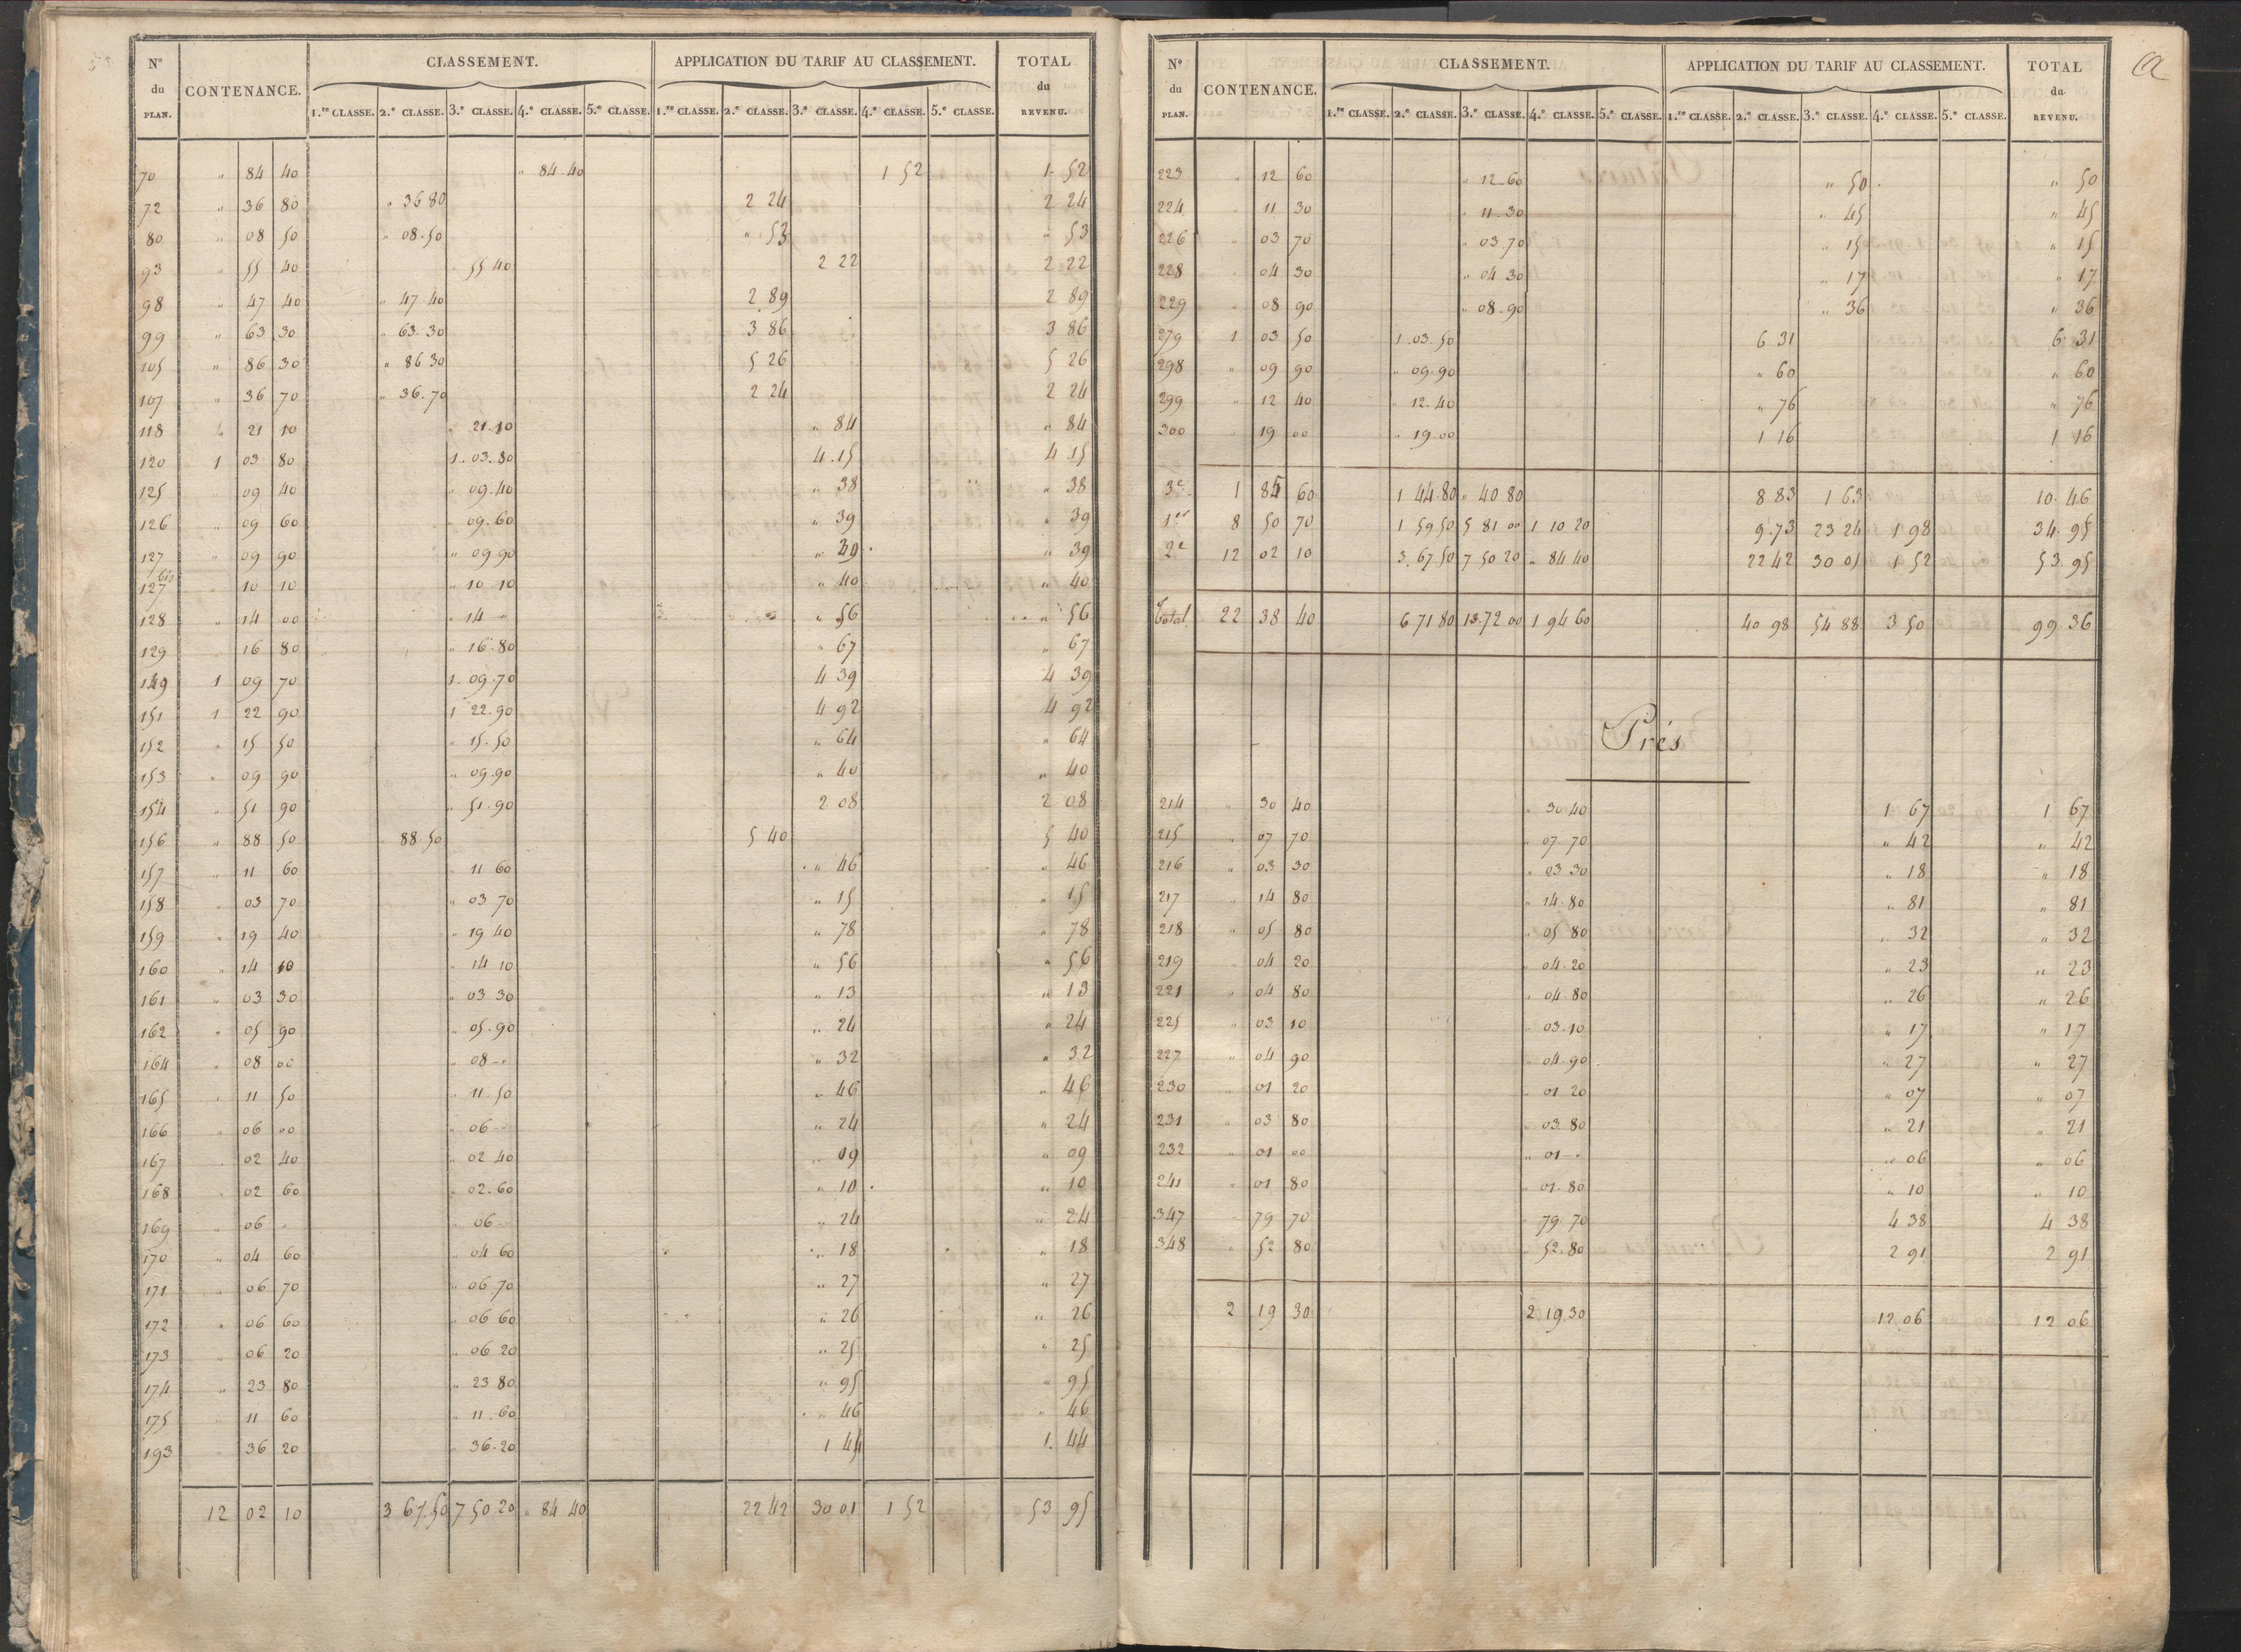 N° du PLAN. CONTENANCE. CLASSEMENT. APPLICATION DU TARIF AU CLASSEMENT. TOTAL du REVENU.
1.re CLASSE. 2.e CLASSE. 3.e CLASSE. 4.e CLASSE. 5.e CLASSE. 1.re CLASSE. 2.e CLASSE. 3.e CLASSE. 4.e CLASSE. 5.e CLASSE.
70 " 84 40 " 84 40 1 52 1 52
72 " 36 80 " 36 80 2 24 2 24
80 " 08 50 " 08.50 " 53 " 53
93 " 55 40 " 55 40 2 22 2 22
98 " 47 40 " 47 40 2 89 2 89
99 " 63 30 " 63.30 3 86 3 86
105 " 86 30 " 86 30 5 26 5 26
107 " 36 70 " 36.70 2 24 2 24
118 " 21 10 " 21.10 " 84 " 84
120 1 03 80 1.03.80 4.15 4 15
125 " 09 40 " 09.40 " 38 " 38
126 " 09 60 " 09.60 " 39 " 39
127 " 09 90 " 09 90 " 39 " 39
127 bis " 10 10 " 10 10 " 40 " 40
128 " 14 00 " 14 - " 56 " 56
129 " 16 80 " 16.80 " 67 " 67
149 1 09 70 1.09.70 4 39 4 39
151 1 22 90 1 22.90 4 92 4 92
152 " 15 50 " 15.50 " 64 " 64
153 " 09 90 " 09.90 " 40 " 40
154 " 51 90 " 51.90 2 08 2 08
156 " 88 50 88.50 5 40 5 40
157 " 11 60 " 11 60 " 46 " 46
158 " 03 70 " 03 70 " 15 " 15
159 " 19 40 " 19 40 " 78 " 78
160 " 14 10 " 14 10 " 56 " 56
161 " 03 30 " 03 30 " 13 " 13
162 " 05 90 " 05.90 " 24 " 24
164 " 08 00 " 08 - " 32 " 32
165 " 11 50 " 11.50 " 46 " 46
166 " 06 00 " 06 - " 24 " 24
167 " 02 40 " 02 40 " 09 " 09
168 " 02 60 " 02.60 " 10 " 10
169 " 06 " " 06 - " 24 " 24
170 " 04 60 " 04 60 " 18 " 18
171 " 06 70 " 06 70 " 27 " 27
172 " 06 60 " 06 60 " 26 " 26
173 " 06 20 " 06 20 " 25 " 25
174 " 23 80 " 23 80 " 95 " 95
175 " 11 60 " 11.60 " 46 " 46
193 36 20 36.20 1 44 1.44
12 02 10 3 67.50 7 50.20 " 84 40 22 42 30 01 1 52 53 95
a
N° du PLAN. CONTENANCE. CLASSEMENT. APPLICATION DU TARIF AU CLASSEMENT. TOTAL du REVENU.
1.re CLASSE. 2.e CLASSE. 3.e CLASSE. 4.e CLASSE. 5.e CLASSE. 1.re CLASSE. 2.e CLASSE. 3.e CLASSE. 4.e CLASSE. 5.e CLASSE.
223 " 12 60 " 12.60 " 50 " 50
224 " 11 30 " 11.30 " 45 " 45
226 " 03 70 " 03.70 " 15 " 15
228 " 04 30 " 04 30 " 17 " 17
229 " 08 90 " 08.90 " 36 " 36
279 1 03 50 1.03.50 6 31 6 31
298 " 09 90 " 09.90 " 60 " 60
299 " 12 40 " 12.40 " 76 " 76
300 19 00 " 19.00 1 16 1 16
3e 1 85 60 1 44.80 " 40 80 8 83 1 63 10.46
1er 8 50 70 1 59 50 5 81 00 1 10 20 9.73 23 24 1 98 34.95
2e 12 02 10 3.67.50 7 50 20 " 84 40 22 42 30 01 1 52 53.95
Total 22 38 40 6 71 80 13.72 00 1 94 60 40 98 54 88 3 50 99 36
Prés
214 " 30 40 " 30 40 1 67 1 67
215 " 07 70 " 07.70 " 42 " 42
216 " 03 30 " 03 30 " 18 " 18
217 " 14 80 " 14.80 " 81 " 81
218 " 05 80 " 05 80 " 32 " 32
219 " 04 20 " 04.20 " 23 " 23
221 " 04 80 " 04.80 " 26 " 26
225 " 03 10 " 03.10 " 17 " 17
227 " 04 90 " 04.90 " 27 " 27
230 " 01 20 " 01 20 " 07 " 07
231 " 03 80 " 03.80 " 21 " 21
232 " 01 00 " 01 - " 06 " 06
241 " 01 80 " 01.80 " 10 " 10
347 " 79 70 79 70 4 38 4 38
348 " 52 80 " 52.80 2 91 2 91
2 19 30 2 19 30 12 06 12 06